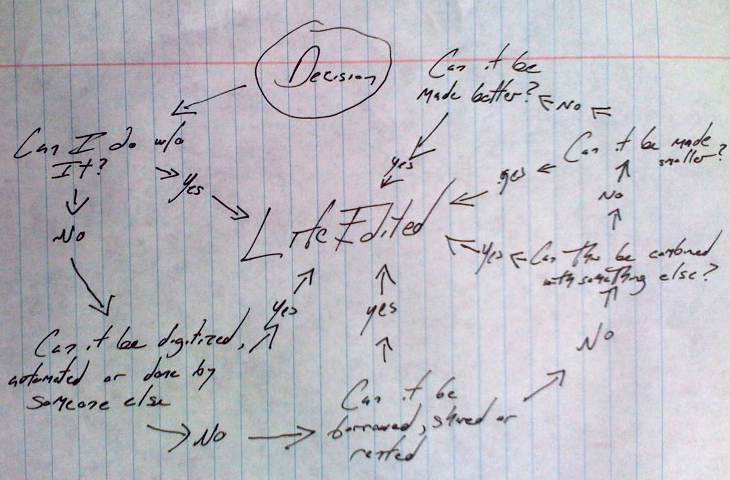 Decision
Can I do w/o
It?
Yes
No
Can it be digitized,
automated or done by
someone else
Yes
No
Can it be
borrowed, shared or
rented
yes
No
Can this be combined
with something else?
Yes
No
Can it be made
smaller?
yes
No
Can it be
made better?
yes
Life Edited